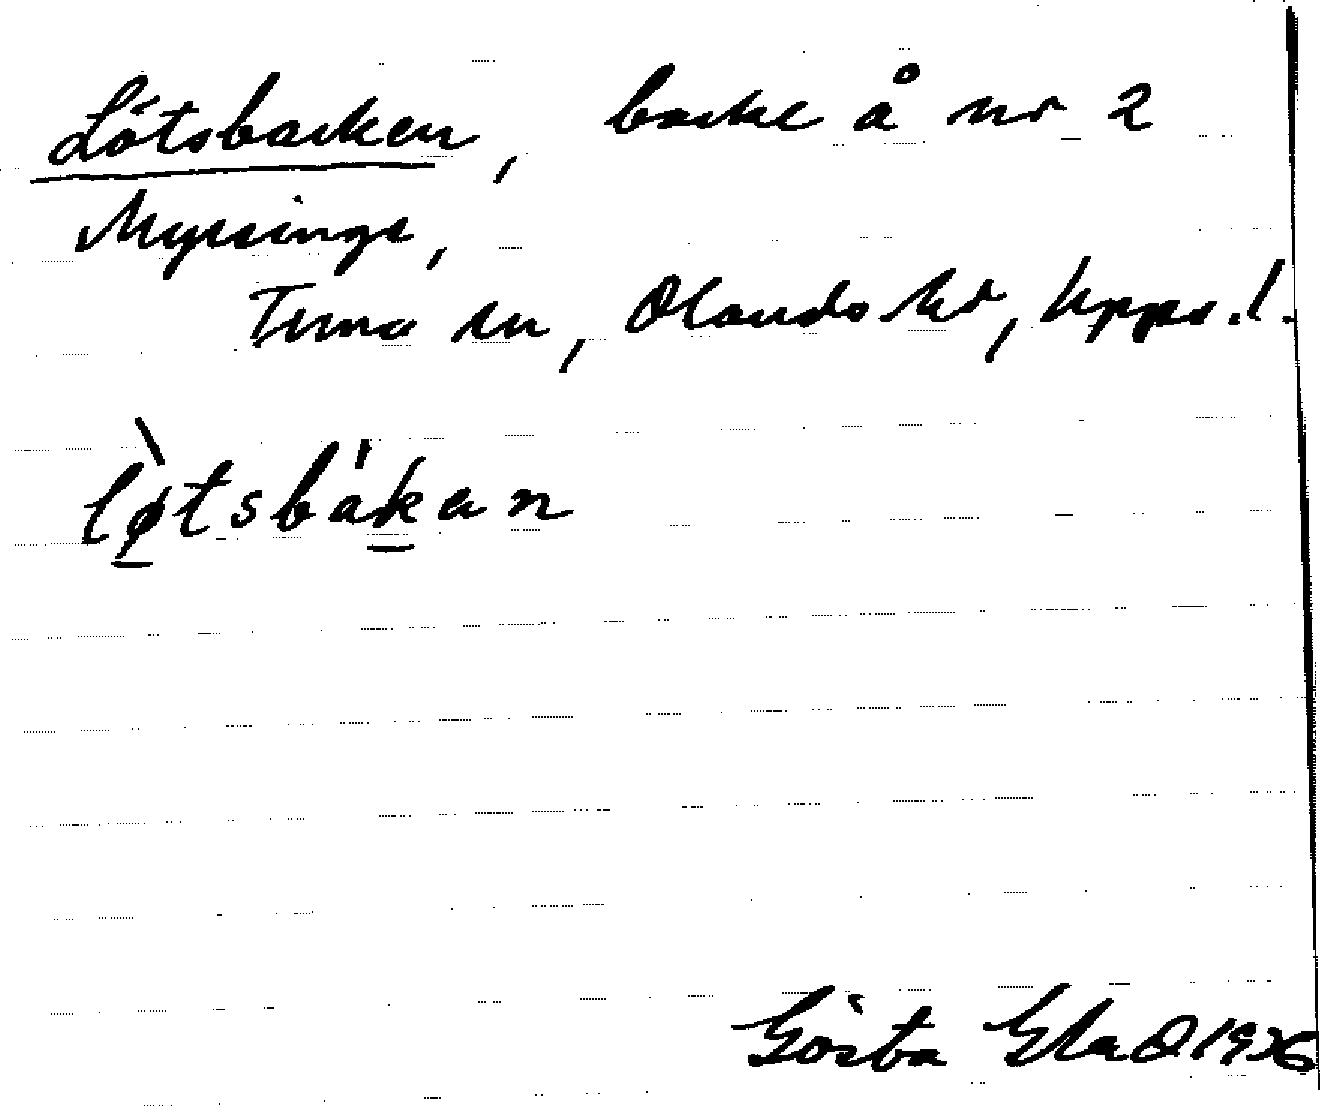 Lötsbacken, backe å nr 2
Myssinge,
Tuna sn, Olands hd, Upps.l.
lø̀tsbákan
Gösta Glad 1936